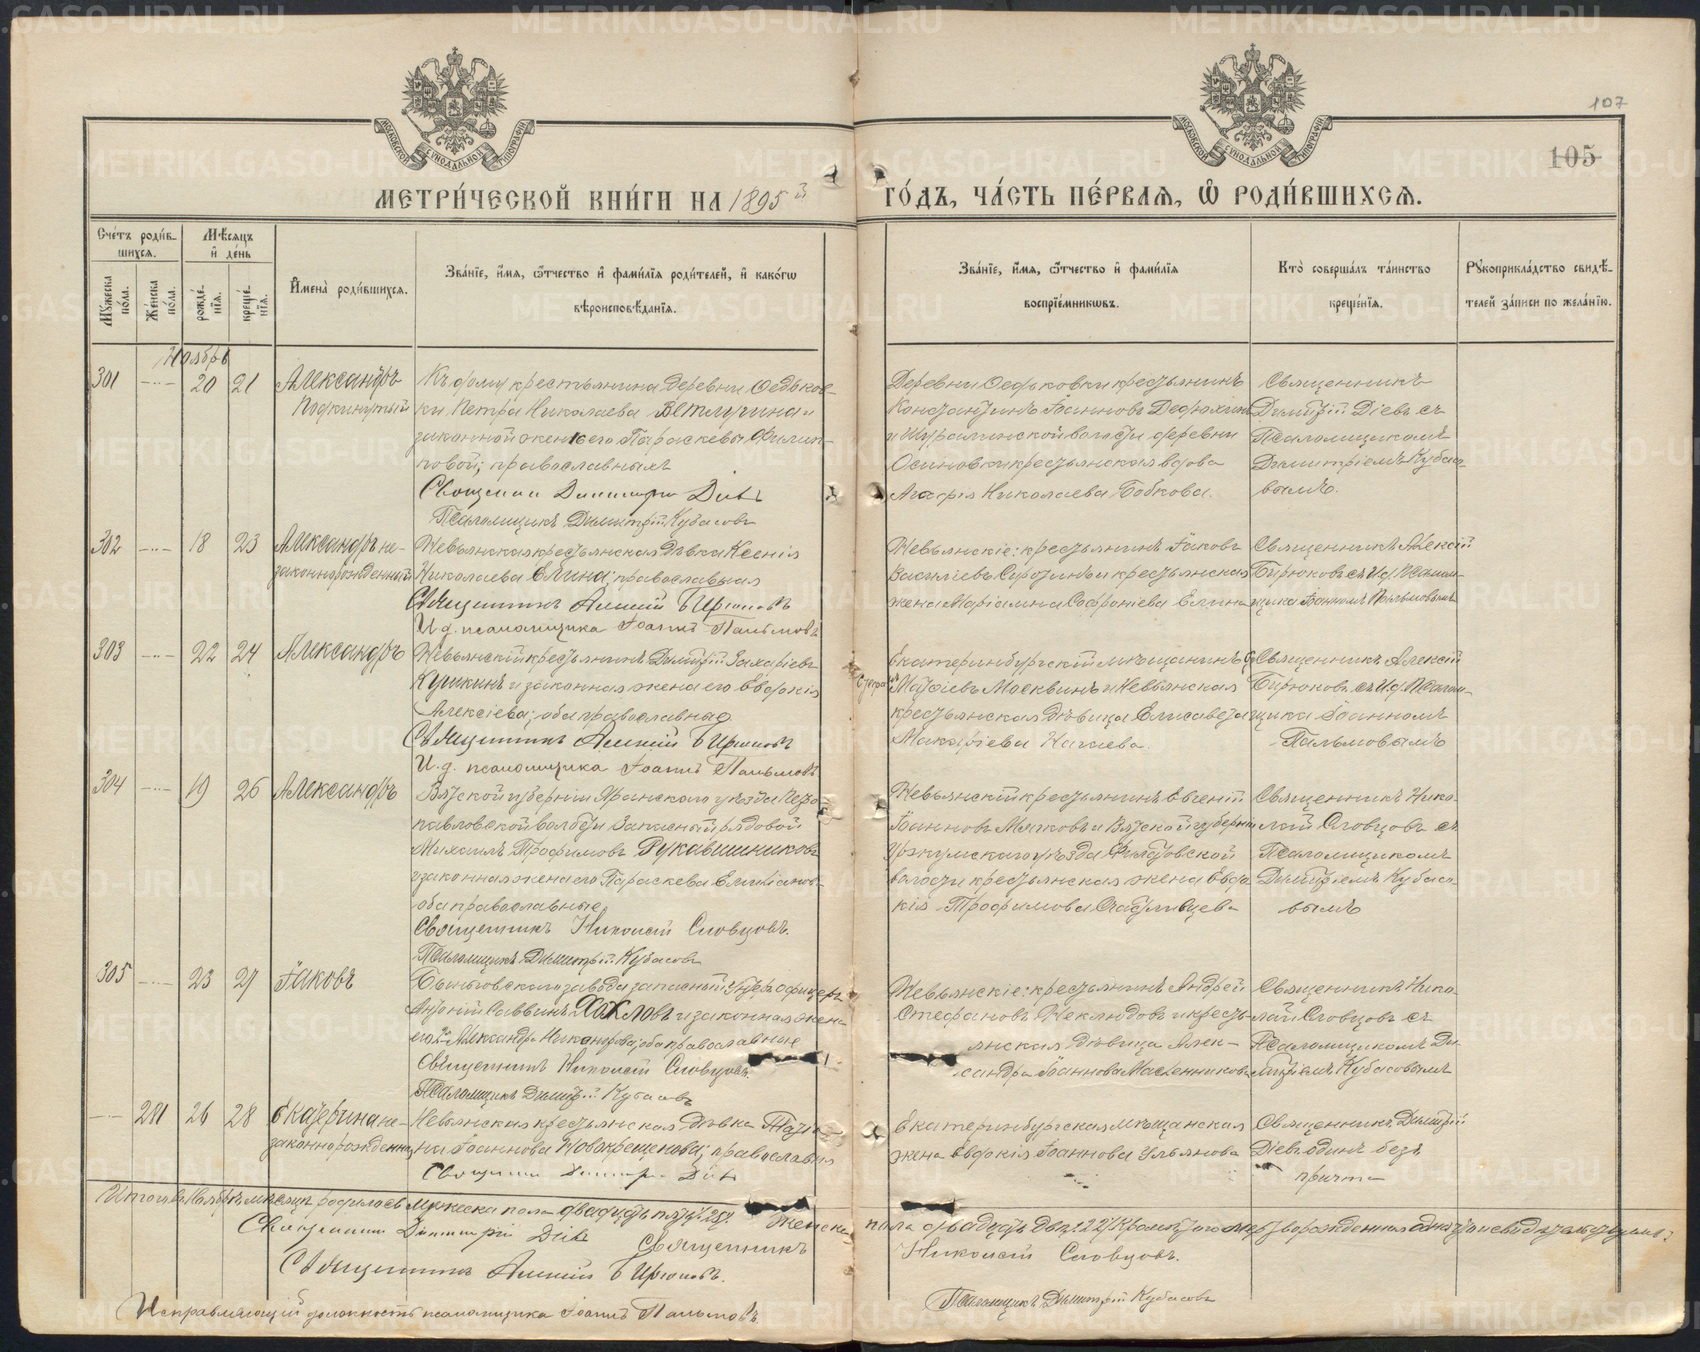 107
105
МЕТРИ́ЧЕСКОЙ КНИ́ГИ НА 1895 й ГО́ДЪ, ЧА́СТЬ ПЕ́РВАѦ, Ѽ РОДИ́ВШИХСѦ.
Сче́тъ роди́в-
шихсѧ.
Мꙋ́жеска по́ла.
Же́нска по́ла.
Мѣ́сѧцъ
и҆ де́нь
рожде́нїѧ.
креще́нїѧ.
И҆мена̀ роди́вшихсѧ.
Зва́нїе, и҆́мѧ, ѻ҆́тчество и҆ фами́лїѧ роди́телей, и҆ како́гѡ
вѣроисповѣ́данїѧ.
Зва́нїе, и҆́мѧ, ѻ҆́тчество и҆ фами́лїѧ
воспрїе́мникѡвъ.
Кто̀ соверша́лъ та́инство
креще́нїѧ.
Рꙋкоприкла́дство свидѣ́-
телей за́писи по жела́нїю.
Ноябрь
301 20 21 Александръ
Подкинутый
Къ дому крестьянина деревни Федьков-
ки Петра Николаева Ветлугина и
законной жены его Параскевы Филип-
повой; православныхъ
Священникъ Димитрій Діевъ
Псаломщикъ Димитрій Кубасовъ
Деревни Федьковки крестьянинъ
Константинъ Іоанновъ
и Шуралинской волости деревни
Осиновки крестьянская вдова
Агафія Николаева Бобкова.
Священникъ
Димитрій Діевъ съ
Псаломщикомъ
Димитріемъ Кубасо-
вымъ.
302 18 23 Александръ не-
законнорожденный
Невьянская крестьянская дѣвка Ксенія
Николаева Елина; православная
Священникъ Алексій Бирюковъ
И. д. псаломщика Іоаннъ Пальмовъ
Невьянскіе: крестьянинъ Іаковъ
Василіевъ и крестьянская
жена Маріамна Софроніева Елина
Священникъ Алексій
Бирюковъ съ И.д. Псалом-
щика Іоанномъ Пальмовымъ
303 22 24 Александръ
Невьянскій крестьянинъ Димитрій Захаріевъ
и законная жена его Евдокія
Алексіева; оба православные
Священникъ Алексій Бирюковъ
И. д. псаломщика Іоаннъ Пальмовъ
Екатеринбургскій мѣщанинъ
Матфіевъ Москвинъ и Невьянская
крестьянская дѣвица Елисавета
Макаріева
Священникъ Алексій
Бирюковъ съ И.д. Псалом-
щика Іоанномъ
Пальмовымъ
304 19 26 Александръ
Вятской губерніи Яранскаго уѣзда Петро-
павловской волости Запасный рядовой
Михаилъ Трофимовъ Рукавишниковъ
и законная жена его Параскева
оба православные
Священникъ Николай Словцовъ.
Псаломщикъ Димитрій Кубасовъ
Невьянскій крестьянинъ Евгеній
Іоанновъ Мячковъ и Вятской губерніи
Уржумскаго уѣзда
волости крестьянская жена Евдо-
кія Трофимова
Священникъ Нико-
лай Словцовъ съ
Псаломщикомъ
Димитріемъ Кубасо-
вымъ
305 23 27 Іаковъ
Быньговскаго завода запасный Унтеръ офицеръ
Антоній Саввинъ Хохловъ и законная жена
его Александра Никанорова; оба православные
Священникъ Николай Словцовъ.
Псаломщикъ Димитрій Кубасовъ
Невьянскіе: крестьянинъ Андрей
Стефановъ Неклюдовъ и кресть-
янская дѣвица Алек-
сандра Іоаннова Масленникова
Священникъ Нико-
лай Словцовъ съ
Псаломщикомъ Ди-
митріемъ Кубасовымъ
281 26 28 Екатерина не-
законнорожденная
Невьянская крестьянская дѣвка Татіа-
на Іоаннова Новокрещенова; православная
Священникъ Димитрій Діевъ
Екатеринбургская мѣщанская
жена Евдокія Іоаннова Ульянова
Священникъ Димитрій
Діевъ одинъ безъ
причта
Итого въ Ноябрѣ мѣсяцѣ родилось мужеска пола двадцать пять 25, женска пола двадцать два 22
Священникъ Димитрій Діевъ Священникъ Николай Словцовъ.
Священникъ Алексій Бирюковъ.
Исправляющій должность псаломщика Іоаннъ Пальмовъ. Псаломщикъ Димитрій Кубасовъ